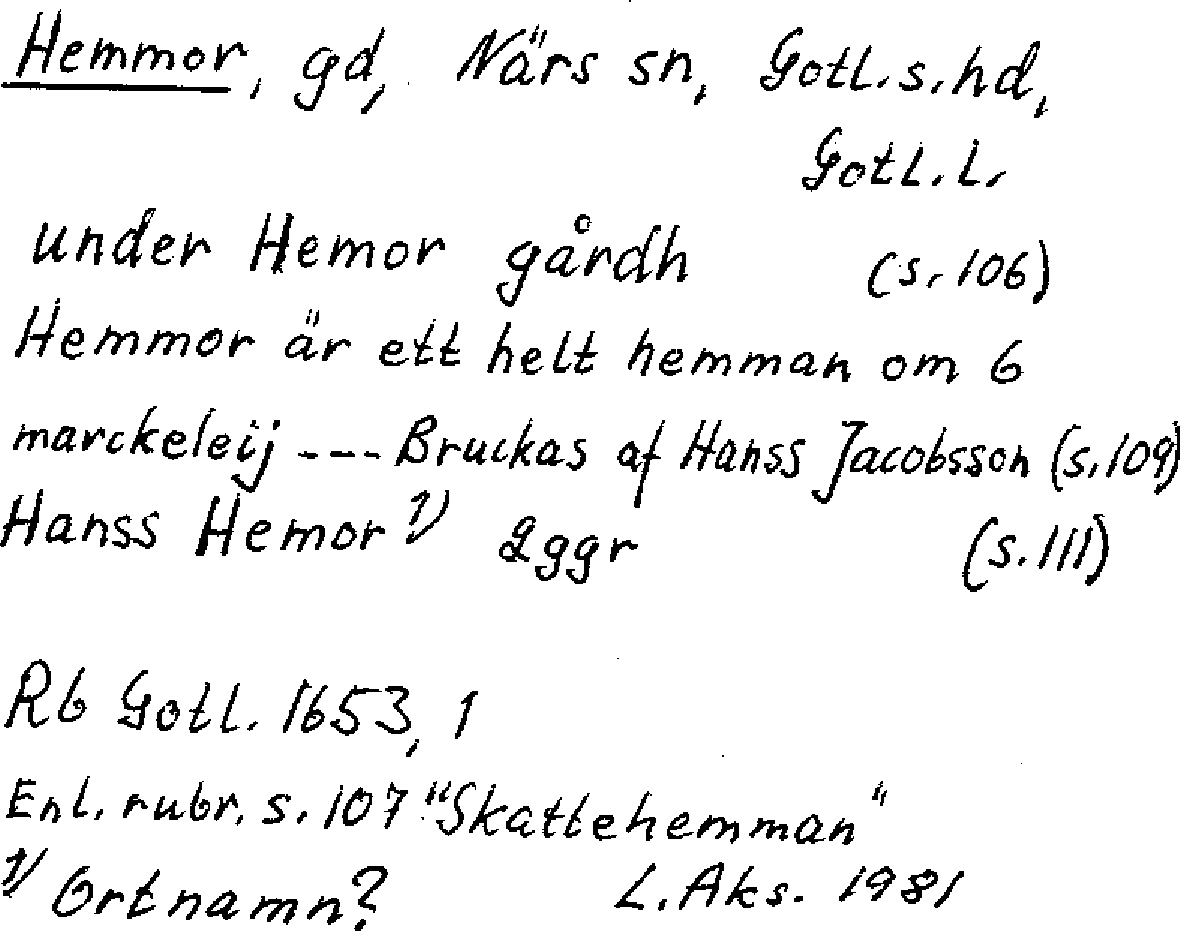 Hemmor, gd, Närs sn, Gotl.s.hd,
Gotl.l.
under Hemor gårdh (s. 106)
Hemmor är ett helt hemman om 6
marckeleij --- Bruckas af Hanss Jacobsson (s.109)
Hanss Hemor 1) 2ggr (s.111)
Rb Gotl. 1653, 1
Enl. rubr. s. 107 "Skattehemman"
1) Ortnamn? L. Aks. 1981